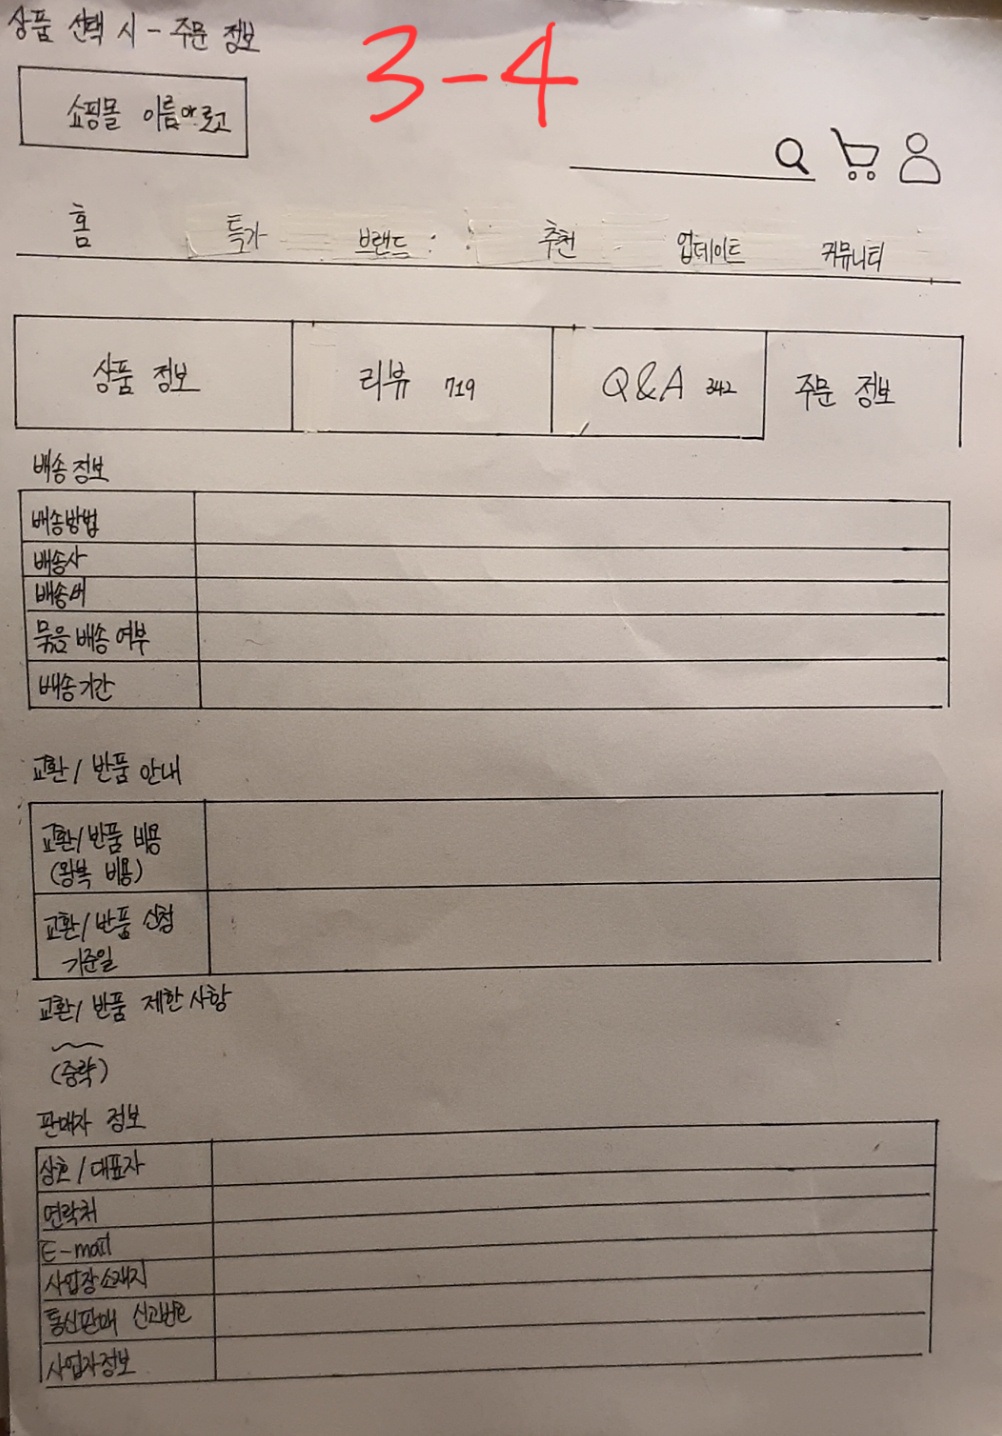 상품 선택 시 - 주문 정보
3-4
쇼핑몰 이름 or 로고
홈 특가 브랜드 추천 업데이트 커뮤니티
상품 정보 리뷰 719 Q&A 342 주문 정보
배송 정보
배송방법
배송사
배송비
묶음 배송 여부
배송기간
교환/반품 안내
교환/반품 비용
(왕복 비용)
교환/반품 신청
기준일
교환/반품 제한 사항
(중략)
판매자 정보
상호/대표자
연락처
E-mail
사업장소재지
통신판매 신고번호
사업자정보